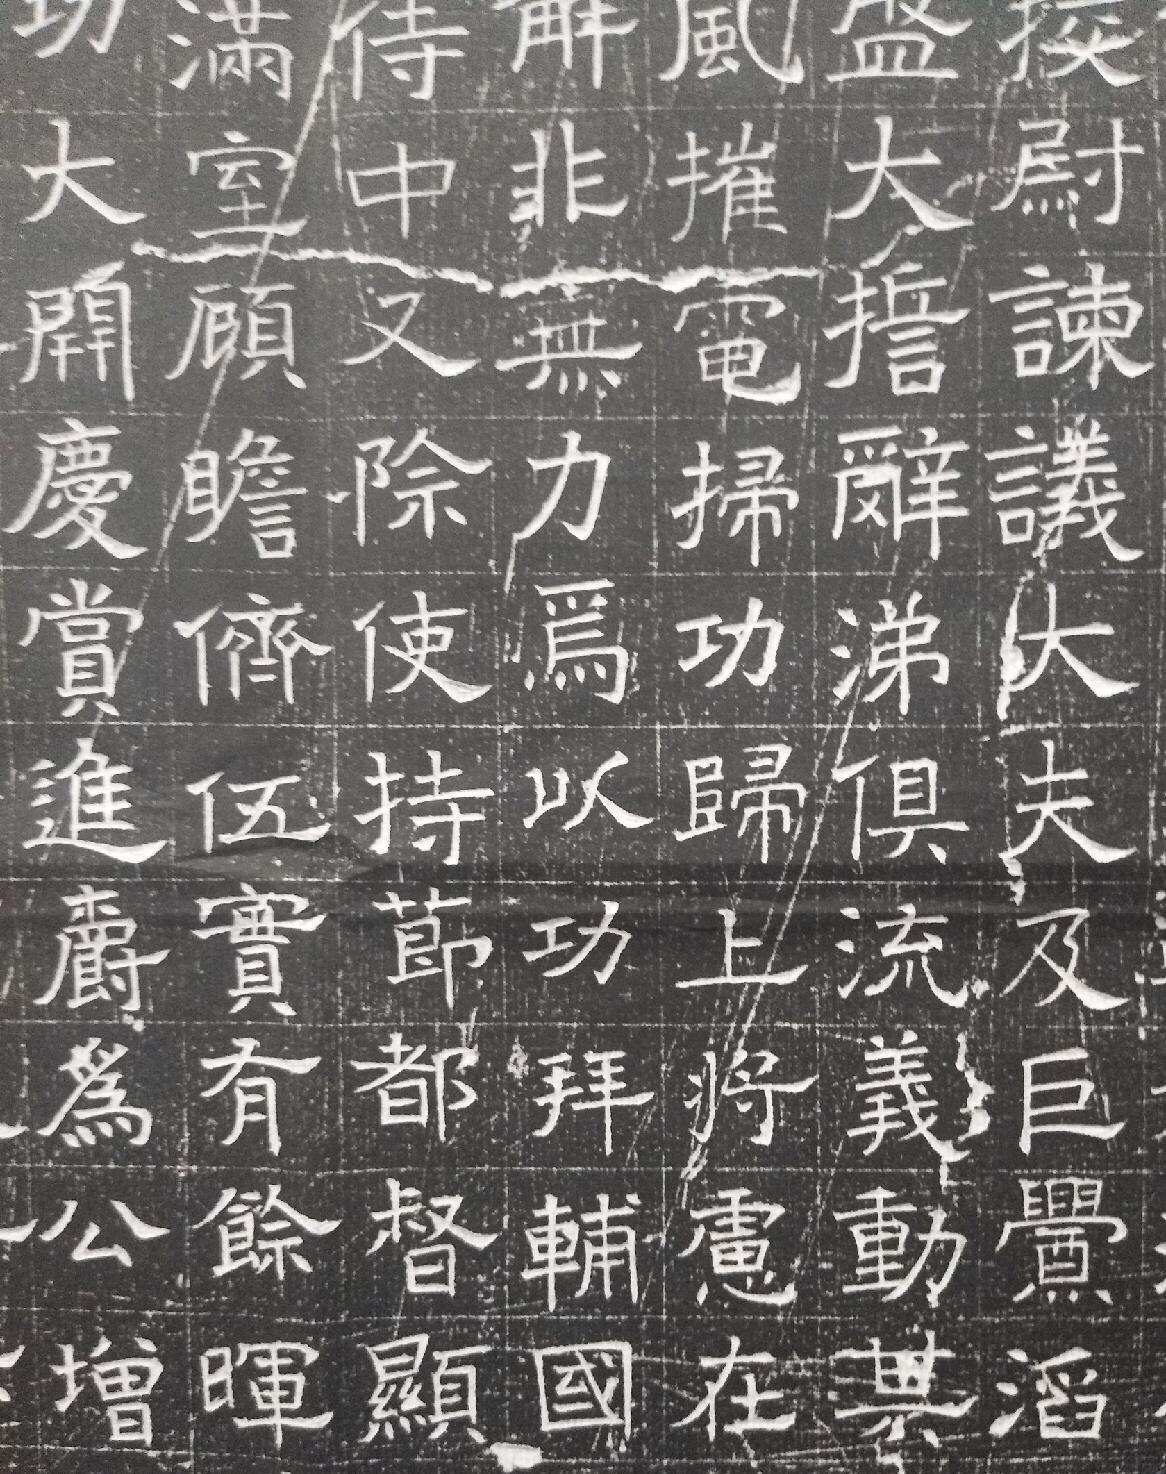 掾尉諫議大夫及巨舋滔
盤大擔辭涕俱流義動其
風摧電掃功歸上將慮在
解非無力為以功拜輔國
侍中又除使持節都督顯
滿室顧瞻儕伍實有餘暉
功大開慶賞進爵為公增